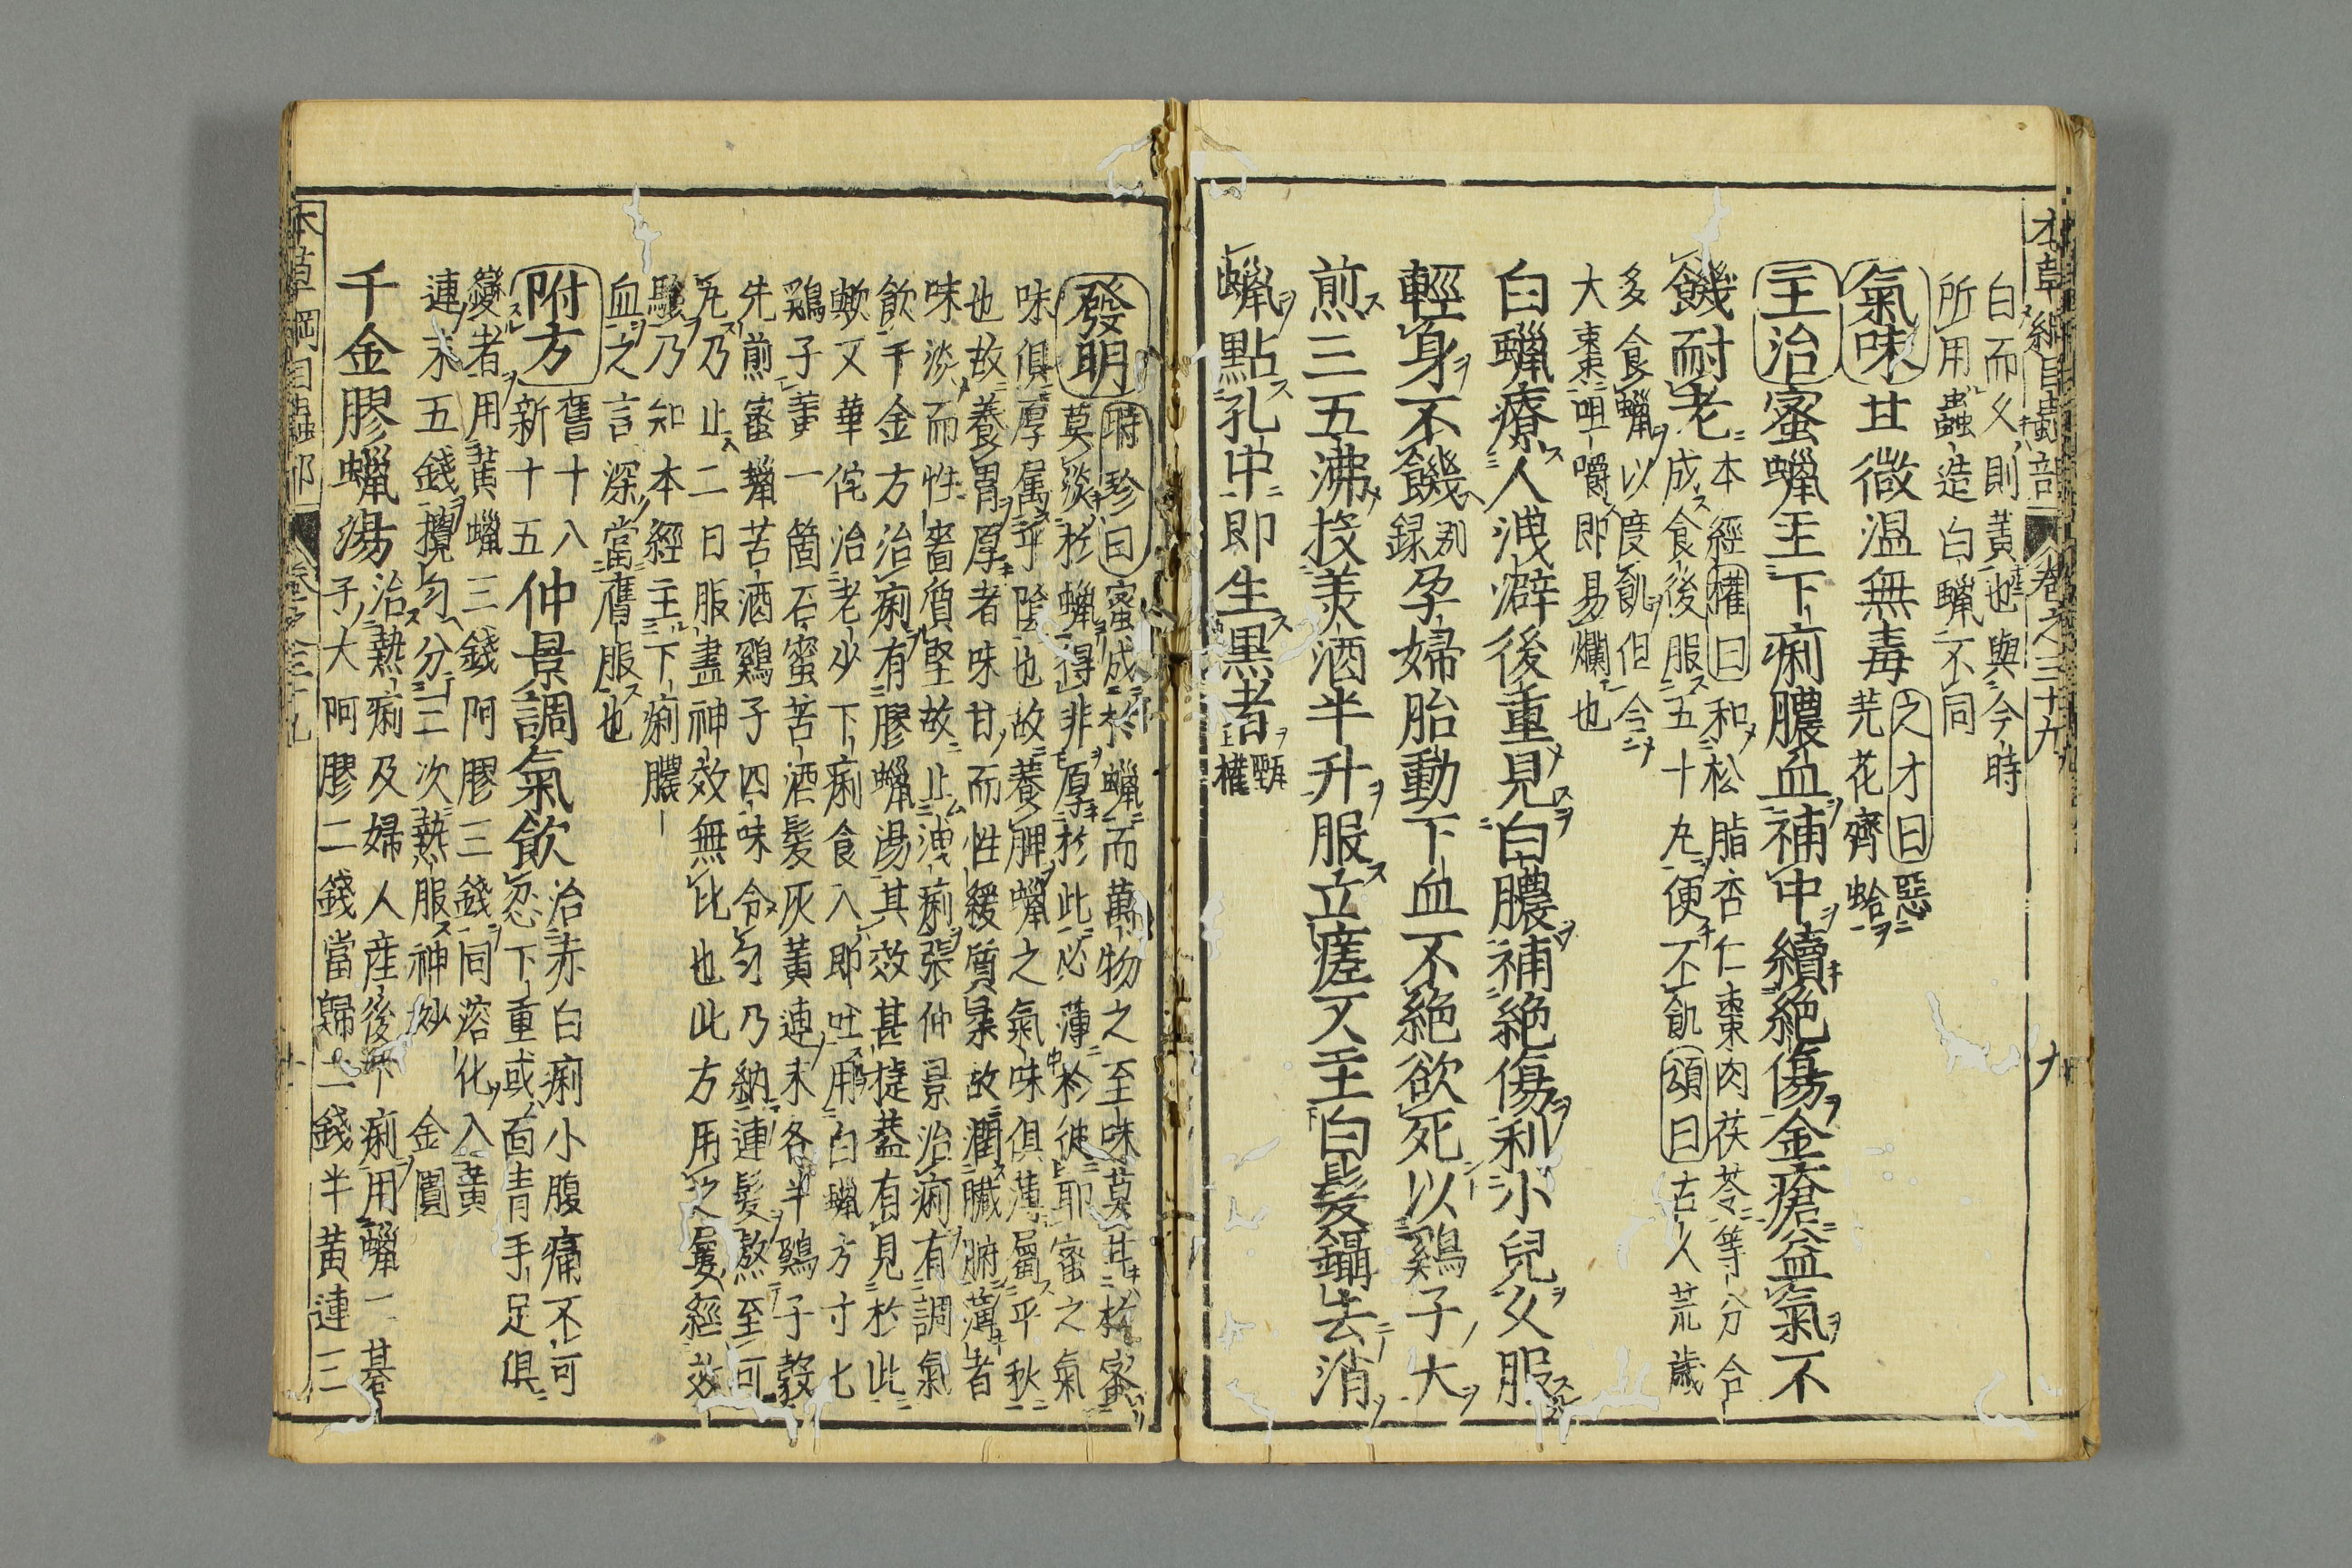 本草綱目蟲部 卷之三十九 九
白而久則黃也與今時
所用蟲造白蠟不同
氣味甘微溫無毒之才曰惡
芫花齊蛤
主治蜜蠟主下痢膿血補中續絕傷金瘡益氣不
饑耐老本經權曰和松脂杏仁棗肉茯苓等分合
成食後服五十丸便不飢頌曰古人荒歲
多食蠟以度飢但合
大棗咀嚼即易爛也
白蠟療人洩澼後重見白膿補絕傷利小兒久服
輕身不饑別錄孕婦胎動下血不絕欲死以鷄子大
煎三五沸投美酒半升服立瘥又主白髮鑷去消
蠟點孔中即生黑者甄權
發明時珍曰蜜成於蠟而萬物之至味莫甘於蜜
莫淡於蠟得非厚於此必薄於彼耶蜜之氣
味俱厚属乎陰也故養脾蠟之氣味俱薄屬乎秋
也故養胃厚者味甘而性緩質柔故潤臟腑薄者
味淡而性嗇質堅故止洩痢張仲景治痢有調氣
飲千金方治痢有膠蠟湯其效甚捷蓋有見於此
歟又華佗治老少下痢食入即吐用白蠟方寸七
鷄子黃一箇石蜜苦酒髮灰黃連末各半鷄子殻
先煎蜜蠟苦酒鷄子四味令匀乃納連髮熬至可
丸乃止二日服盡神效無比也此方用之屢經效
驗乃知本經主下痢膿
血之言深當膺服也
附方舊十八
新十五
仲景調氣飲治赤白痢小腹痛不可
忍下重或面青手足俱
變者用黃蠟三錢阿膠三錢同溶化入黃
連末五錢攪匀分三次熱服神妙 金匱
千金膠蠟湯治熱痢及婦人産後下痢用蠟二碁
子大阿膠二錢當歸二錢半黃連三
本草綱目蟲部 卷之三十九